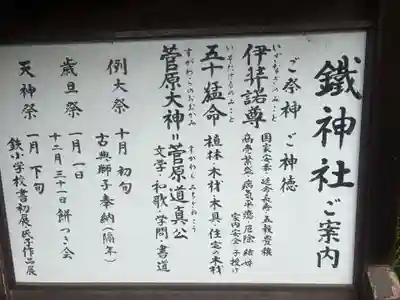 鐵神社ご案内
ご祭神 ご神徳
いざなぎのみこと
伊弉諾尊
国家安泰・延命長寿・五穀豊穣
商売繁盛・病気平癒・厄除・結婚
家内安全・子授け
いそたけるのみこと
五十猛命
植林・木材・木具・住宅・木材
すがわらのおおかみ
菅原大神=菅原道真公
すがわら みちざねこう
文学・和歌・学問・書道
例大祭 十月 初旬
古典獅子奉納(隔年)
歳旦祭 一月一日
十二月三十一日餅つき会
天神祭 一月 下旬
鉄小学校書初展・氏子作品展